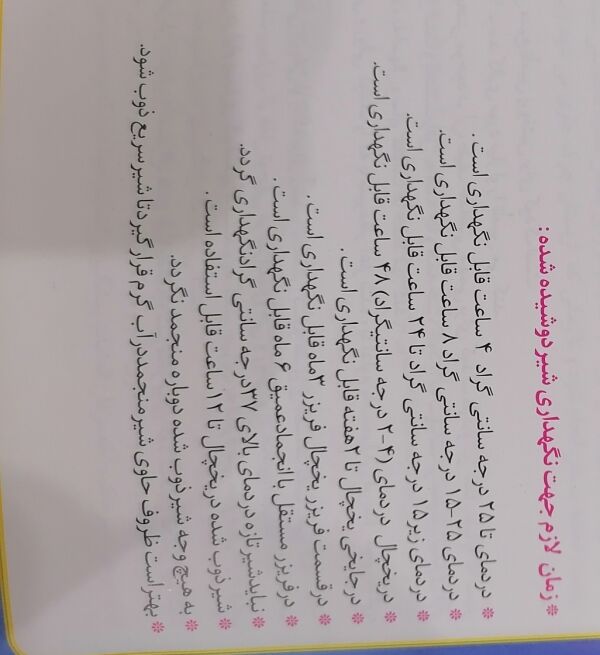 * زمان لازم جهت نگهداری شیر دوشیده شده :
* در دمای تا ۲۵ درجه سانتی گراد ۴ ساعت قابل نگهداری است .
* در دمای ۲۵-۱۵ درجه سانتی گراد ۸ ساعت قابل نگهداری است.
* در دمای زیر ۱۵ درجه سانتی گراد تا ۲۴ ساعت قابل نگهداری است.
* در یخچال در دمای (۴-۲ درجه سانتیگراد) ۴۸ ساعت قابل نگهداری است.
* در جایخی یخچال تا ۲ هفته قابل نگهداری است .
* در قسمت فریزر یخچال فریزر ۳ ماه قابل نگهداری است .
* در فریزر مستقل با انجماد عمیق ۶ ماه قابل نگهداری است .
* نباید شیر تازه در دمای بالای ۳۷ درجه سانتی گراد نگهداری گردد.
* شیر ذوب شده در یخچال تا ۱۲ ساعت قابل استفاده است .
* به هیچ وجه شیر ذوب شده دوباره منجمد نگردد.
* بهتر است ظروف حاوی شیر منجمد در آب گرم قرار گیرد تا شیر سریع ذوب شود.